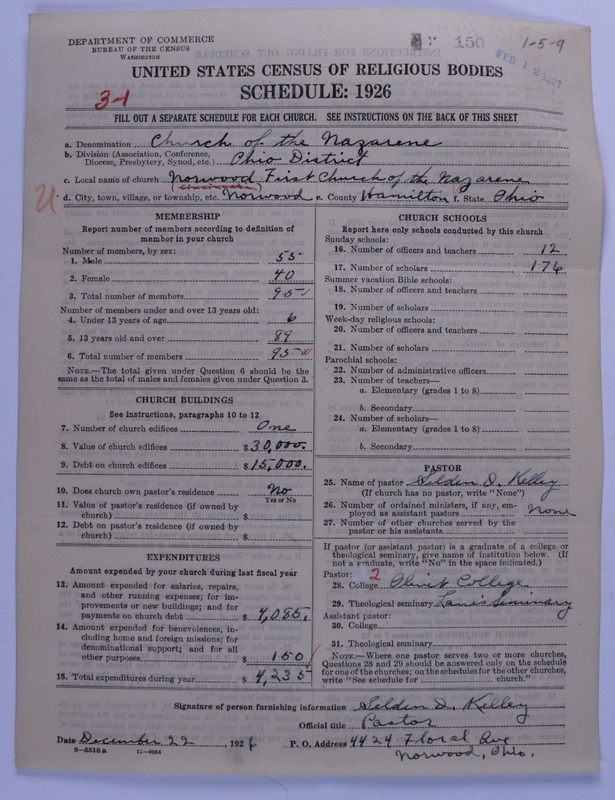 DEPARTMENT OF COMMERCE
BUREAU OF THE CENSUS
WASHINGTON
150
1-5-9
FEB 12 1927
UNITED STATES CENSUS OF RELIGIOUS BODIES
SCHEDULE: 1926
3-1
FILL OUT A SEPARATE SCHEDULE FOR EACH CHURCH. SEE INSTRUCTIONS ON THE BACK OF THIS SHEET
a. Denomination Church of the Nazarene
b. Division (Association, Conference, Diocese, Presbytery, Synod, etc.) Ohio District
c. Local name of church Norwood First Church of the Nazarene
(Cincinnati)
U
d. City, town, village, or township, etc. Norwood e. County Hamilton f. State Ohio
MEMBERSHIP
Report number of members according to definition of
member in your church
Number of members, by sex:
1. Male 55
2. Female 40
3. Total number of members 95
Number of members under and over 13 years old:
4. Under 13 years of age 6
5. 13 years old and over 89
6. Total number of members 95
NOTE.—The total given under Question 6 should be the
same as the total of males and females given under Question 3.
CHURCH BUILDINGS
See instructions, paragraphs 10 to 12
7. Number of church edifices One
8. Value of church edifices $30,000.
9. Debt on church edifices $15,000.
10. Does church own pastor's residence No
Yes or No
11. Value of pastor's residence (if owned by
church) $
12. Debt on pastor's residence (if owned by
church) $
EXPENDITURES
Amount expended by your church during last fiscal year
13. Amount expended for salaries, repairs,
and other running expenses; for im-
provements or new buildings; and for
payments on church debt $4,085.
14. Amount expended for benevolences, in-
cluding home and foreign missions; for
denominational support; and for all
other purposes $150
15. Total expenditures during year $4,235
CHURCH SCHOOLS
Report here only schools conducted by this church
Sunday schools:
16. Number of officers and teachers 12
17. Number of scholars 176
Summer vacation Bible schools:
18. Number of officers and teachers
19. Number of scholars
Week-day religious schools:
20. Number of officers and teachers
21. Number of scholars
Parochial schools:
22. Number of administrative officers
23. Number of teachers—
a. Elementary (grades 1 to 8)
b. Secondary
24. Number of scholars—
a. Elementary (grades 1 to 8)
b. Secondary
PASTOR
25. Name of pastor Selden D. Kelley
(If church has no pastor, write "None")
26. Number of ordained ministers, if any, em-
ployed as assistant pastors None
27. Number of other churches served by the
pastor or his assistants
If pastor (or assistant pastor) is a graduate of a college or
theological seminary, give name of institution below. (If
not a graduate, write "No" in the space indicated.)
Pastor: 2
28. College Olivet College
29. Theological seminary Lane Seminary
Assistant pastor:
30. College
31. Theological seminary
NOTE.—Where one pastor serves two or more churches,
Questions 28 and 29 should be answered only on the schedule
for one of the churches; on the schedules for the other churches,
write "See schedule for church."
Signature of person furnishing information Selden D. Kelley
Official title Pastor
Date December 22, 1926 P. O. Address 4424 Floral Ave
8-5518a 11-9084 Norwood, Ohio.